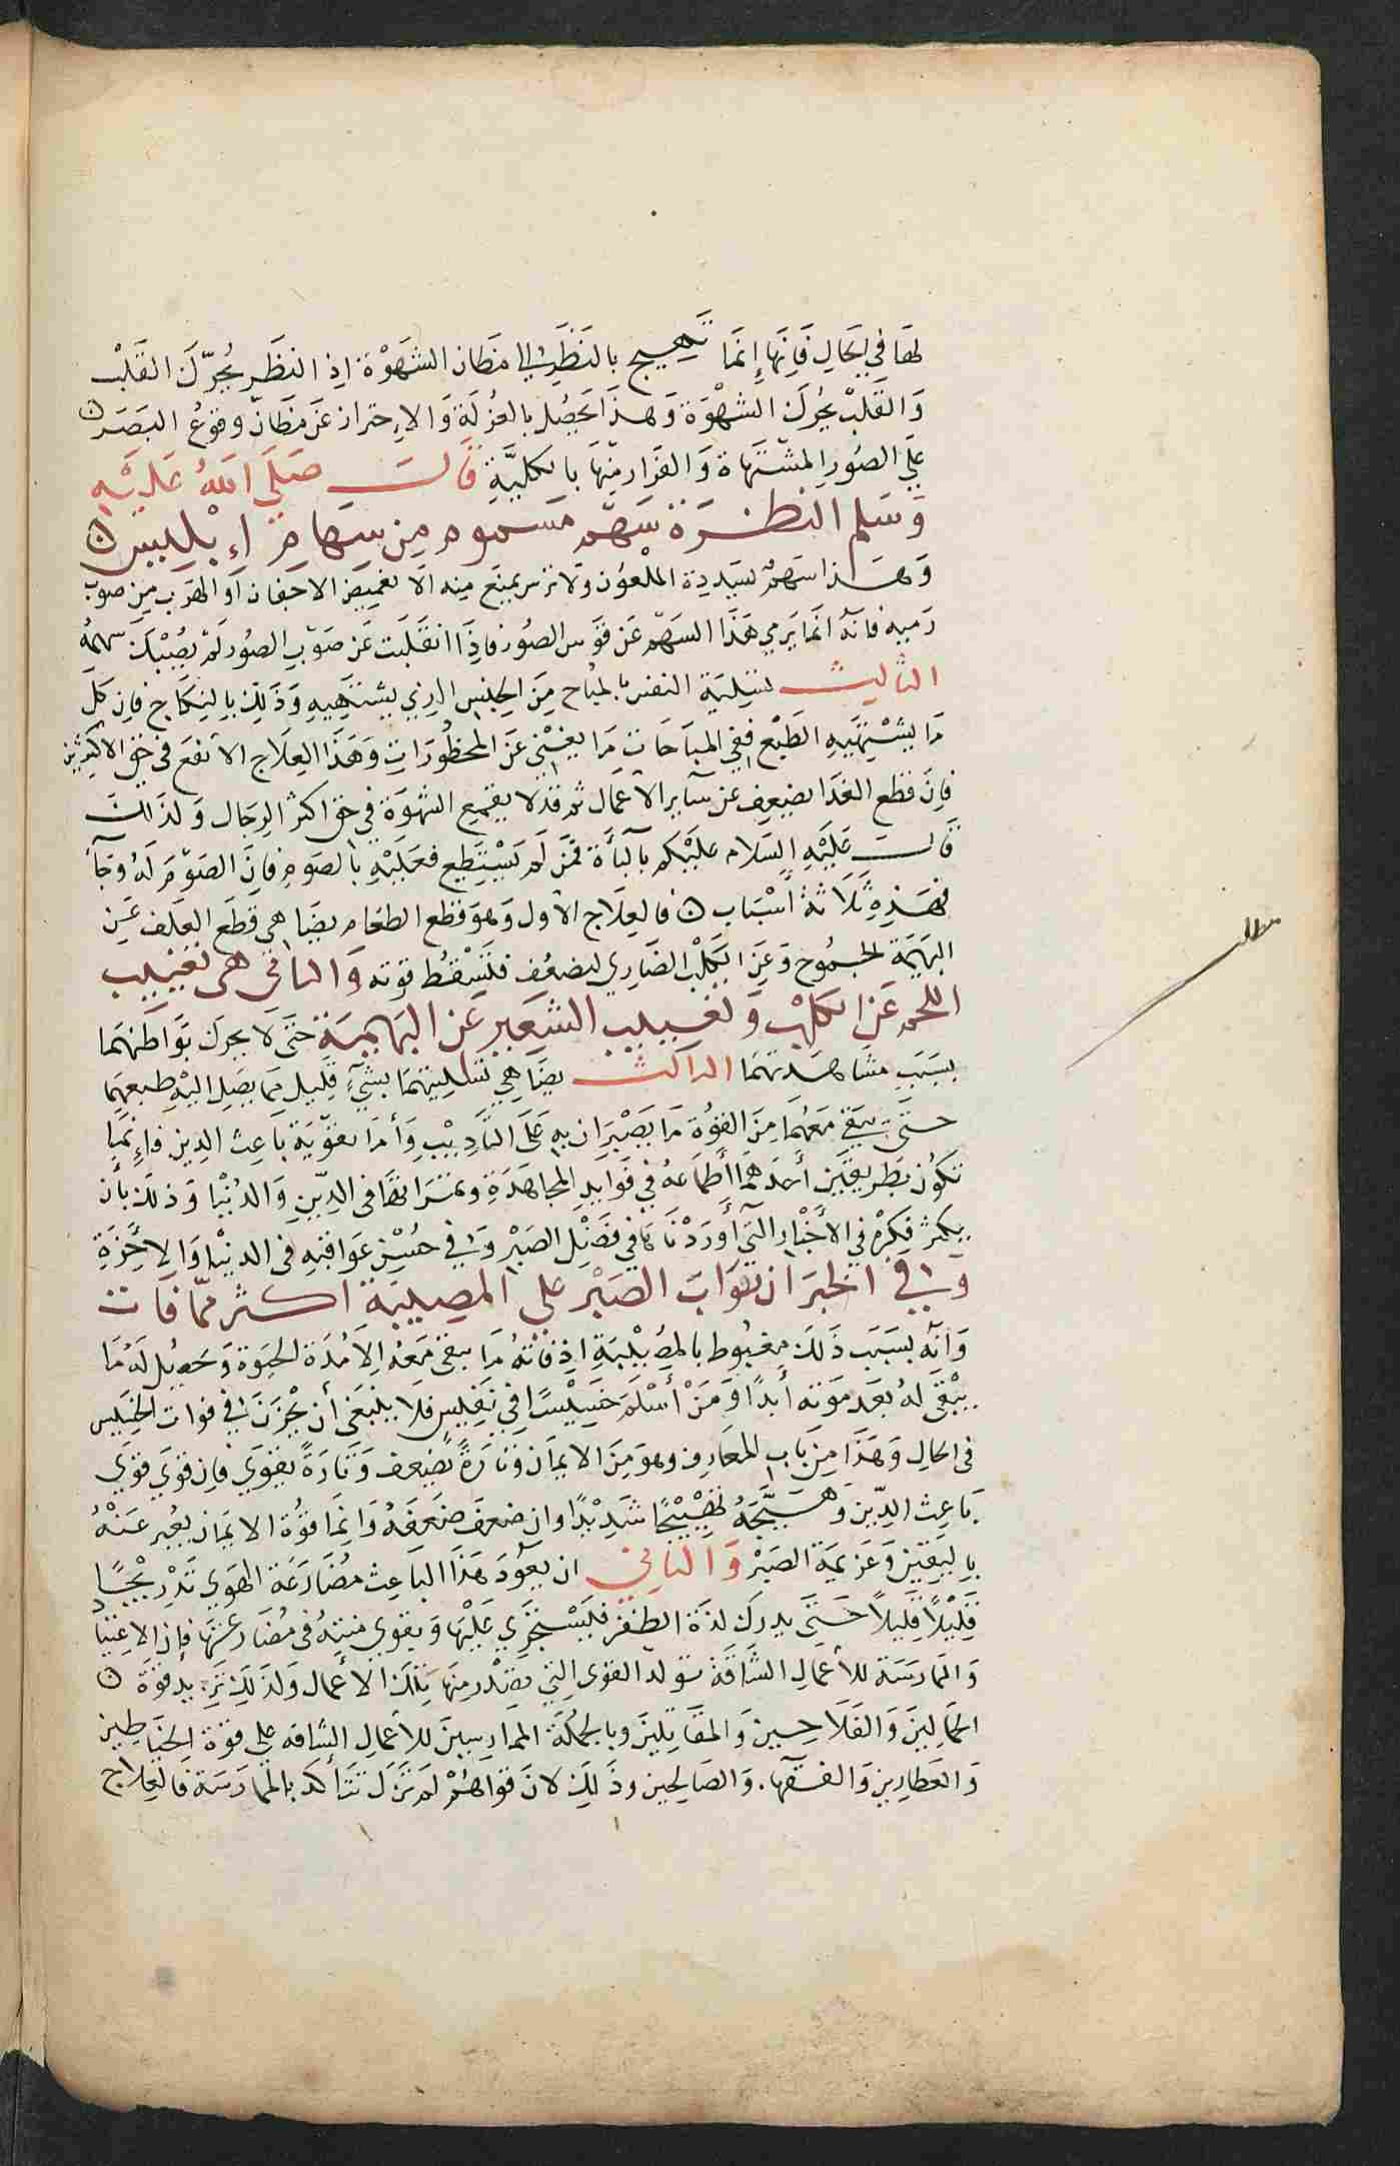 لها في الحال فَإنها إنما تهيج بالنظر إلى مظان الشهْوَة إذ النظر يُحرّك القلْب
وَالقلبْ يحرك الشهْوة وَهذا يحصُل بالعُزلة وَالاحتراز عَن مظانّ وقوعُ البَصَر
علي الصُور المشتهاة وَالفرار منها بالكليّةِ قالَ صَلى اللهُ عَليْه
وَسَلم النظرَة سَهم مسموم مِن سِهَام إبْليسَ ن
وَهذا سَهمْ يسَدده الملْعوُن وَلا ترس يمنَع منه الا تغميض الاجفان أو الهرَب مِن صوْب
رَميه فانهُ انما يَرمي هَذا السَهْم عَن قوَس الصُور فاذا انقلبت عَن صَوْب الصُور لَمْ يصُبْك سَهمُهُ
الثالث تسْلية النفس بالمباح مِنَ الجنس الذِي يشتهيهِ وَذَلك بالنكاح فان كل
مَا يشْتهيه الطبْع ففي المباحَات مَا يغني عَن المحظوُرَات وَهَذا العِلاج الانفع في حق الاكثرين
فإن قطع الغذا يضعِف عن سآير الأعمال ثم قد لا يقمع الشهوَة في حق اكثر الرجَال وَلذلكَ
قالَ عَليْهِ السَلام عليْكم بآلبآءة فمَن لم يَسْتطِع فعَليْهِ بالصَومِ فإن الصَوْمَ لهُ وِجَآءُ
فهَذِهِ ثلاثة أسْبَاب ن فالعلاج الأول وَهوَ قطع الطعام يضاهي قطَع العَلف عَن
البَهيمَة الجمُوح وَعَن الكلبْ الضارِي ليضعُف فتسْقط قوته وَالثاني هي تغييب
اللحم عَن الكلب وَتغييب الشعير عَن البَهيمة حَتى لا يحرك بوَاطنهمَا
بسَبَب مشاهدتهمَا الثالث يضاهي تسْليتهمَا بشيءٍ قليل ممَا يَصِل اليْهِ طبعهمَا
حتى يبَقى مَعهُمَا مِنَ القوُة مَا يَصْبرَان به عَلى التأدِيْب وَأمَا تقوّيَة باعث الدين فإنمَا
تكوُن بطريقيَن أحدهمَا أطماعهُ في فوَايد المجاهَدَة وثمرَاتها في الدِّينِ وَالدُنيْا وَذلك بأن
يكثر فِكرهْ في الأخْبَار التي أورَدْنَاها في فضْل الصَبْر وَفي حسُن عَوَاقبه في الدنيْا وَالاخِرَةِ
وَفي الخبَر ان ثوَابَ الصَبْر علي المصيبَة اكثر ممّا فاتَ
وَأنه بسَبَب ذلكَ مغبُوط بالمصُيْبَة إذ فاتهُ مَا يبقى مَعَهُ الا مُدَة الحيَوة وَحَصُل لهُ مَا
يبْقى لهُ بَعَد مَوْته أبدًا وَمَنْ أسْلمَ خسِيْسًا في نفيِس فلا ينبَغي أن يحْزَن في فوات الخسِيس
في الحالِ وَهَذا مِنَ باب المعَارف وهوَ مِنَ الايمَان وَتارَةً يضعف وَتارَةً يقوَي فإن قوَي قوَي
بَاعث الدِّين وَهيَّجَهُ تهيْيْجًا شدِيْدًا وان ضعفَ ضَعفَهُ وَإنمَا قوُة الايمَان يعُبر عَنْهُ
باليقين وَعَزيمَة الصَبْر وَالثاني ان يعَوُدَ هَذَا البَاعث مُصَارَعَة الهَوَي تدْريجًا
قليْلاً قليلاً حَتى يدركَ لذة الظفر فيسْتجْري عَليْهَا وَيقوي منتهُ في مُصَارعتهَا فإن الاعتيا د
وَالممارَسَة للأعمال الشاقة تؤكد القوَى التي تصْدر منهَا تِلكَ الاعمال وَلذلِك تزيد قوّة ن
الحمالينَ وَالفلاحِينَ وَالمقاتلينَ وبالجُملة الممارسِينَ للاعمال الشاقه علي قوة الخيَاطينَ
وَالعَطارين وَالفقهآء وَالصَالِحين وذلِكَ لأن قوَاهُمْ لمْ تَزل تتأكد بالممارَسَة فالعِلاج
مطلب